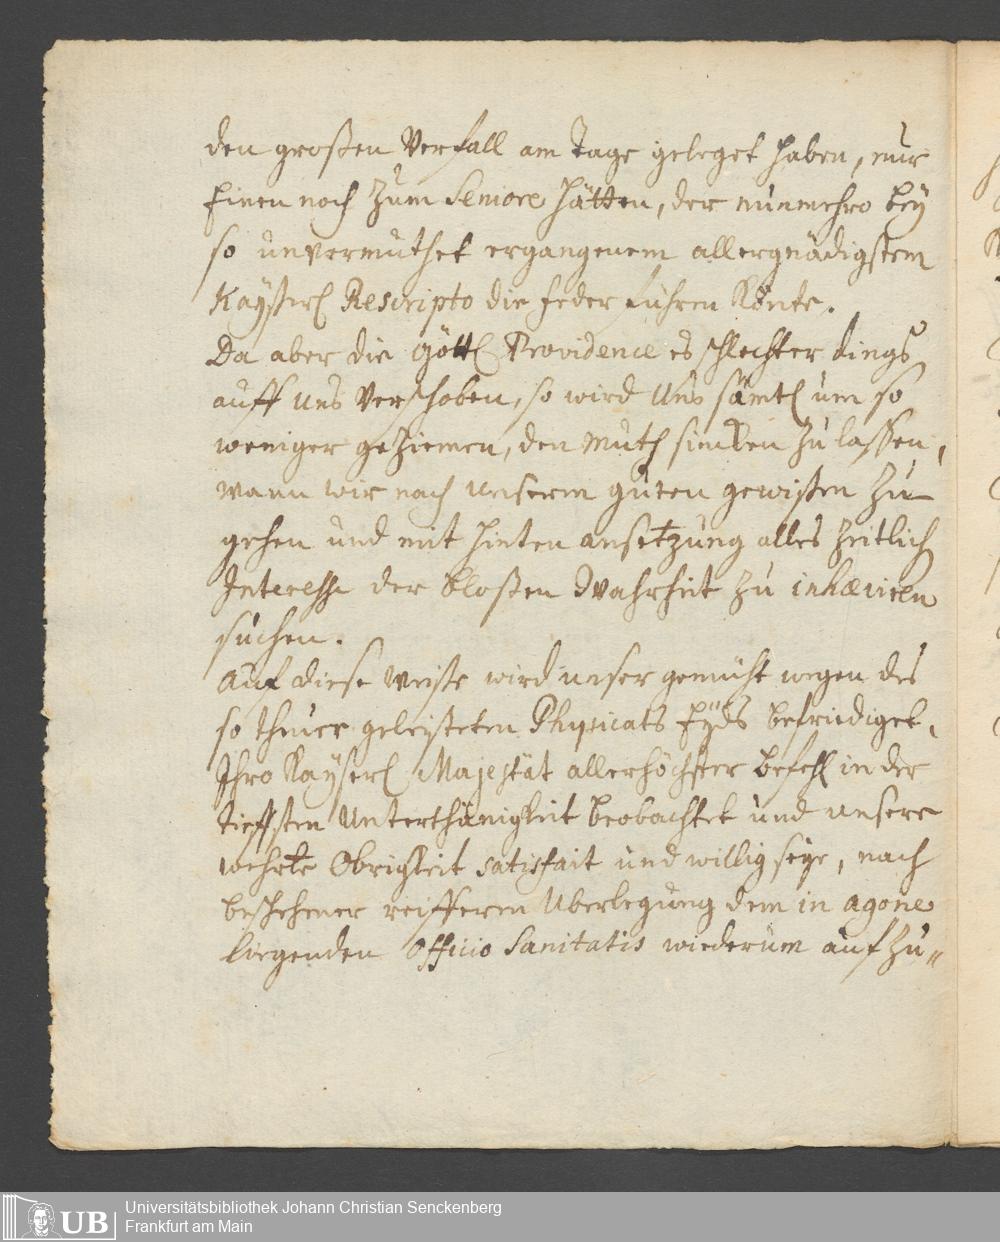 den großen Verfall am Tage geleget haben, nur
Einen noch zum Seniore hätten, der nunmehro bey
so unvermuthet ergangenem allergnädigstem
Kayßerl Rescripto die Feder führen könte.
Da aber die Göttl Providence es schlechter dings
auff uns verschoben, so wird Uns sämtl um so
weniger geziemen, den Muth sincken zu lassen,
wann wir nach unserm guten gewißen zu
gehen und mit hinten ansetzung alles Zeitlich
Interesse der bloßen Wahrheit zu inhæriren
suchen.
Auf diese Weiße wird unser gemüht wegen des
so theuer geleisteten Physicats Eÿds befriediget,
Ihro Kayßerl Majestät allerhöchster Befehl in der
tieffsten Unterthänigkeit beobachtet und unsere
wehrte Obrigkeit satisfait und willig seye, nach
beschehener reifferm Uberlegung dem in agone
liegenden Officio Sanitatis wiederum aufzu„
UB
Universitätsbibliothek Johann Christian Senckenberg
Frankfurt am Main